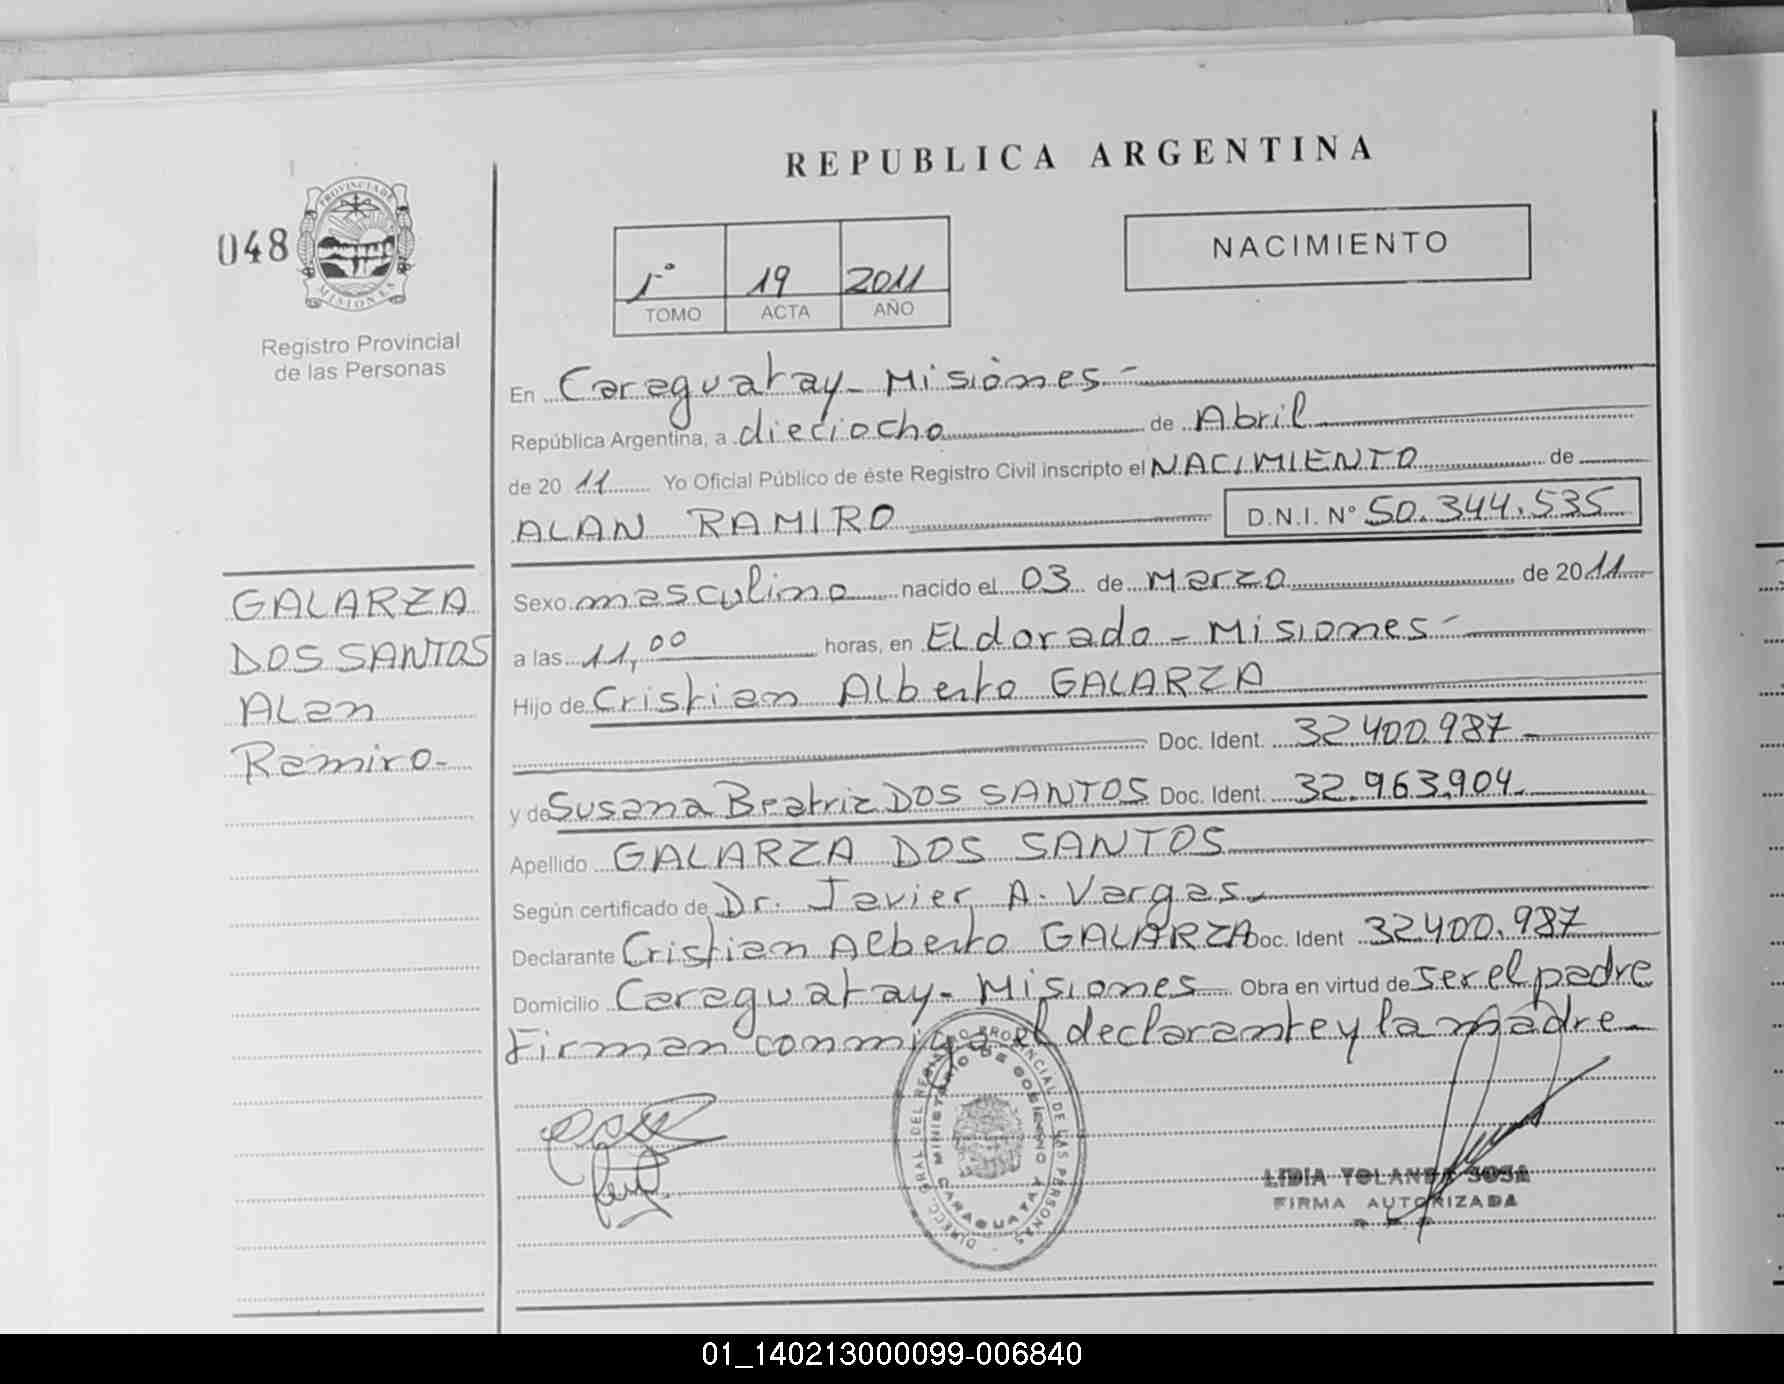 REPUBLICA ARGENTINA
048
PROVINCIA DE
MISIONES
Registro Provincial
de las Personas
1º 19 2011
TOMO ACTA AÑO
NACIMIENTO
En Caraguatay - Misiones -
República Argentina, a dieciocho de Abril
de 20 11 Yo Oficial Público de éste Registro Civil inscripto el NACIMIENTO de
ALAN RAMIRO D.N.I. Nº 50.344.535
GALARZA
DOS SANTOS
Alan
Ramiro -
Sexo masculino nacido el 03 de Marzo de 20 11
a las 11,00 horas, en Eldorado - Misiones -
Hijo de Cristian Alberto GALARZA
Doc. Ident. 32.400.987 -
y de Susana Beatriz DOS SANTOS Doc. Ident. 32.963.904 -
Apellido GALARZA DOS SANTOS
Según certificado de Dr. Javier A. Vargas -
Declarante Cristian Alberto GALARZA Doc. Ident 32.400.987
Domicilio Caraguatay - Misiones Obra en virtud de ser el padre
Firman conmigo el declarante y la madre -
DIRECC. GRAL DEL REGISTRO PROVINCIAL DE LAS PERSONAS
MINISTERIO DE GOBIERNO
CARAGUATAY
LIDIA YOLANDA SOSA
FIRMA AUTORIZADA
01_140213000099-006840